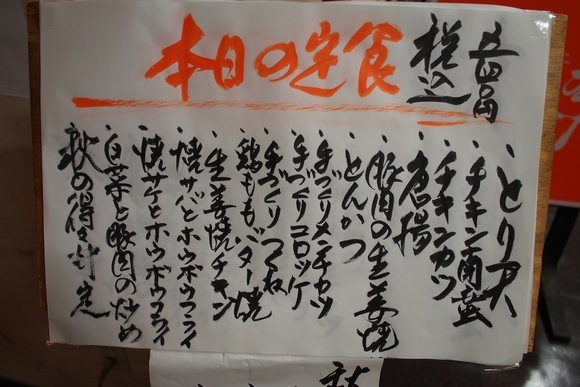 本日の定食
税込
五四〇円
・とり天
・チキン南蛮
・チキンカツ
・唐揚
・豚肉の生姜焼
・とんかつ
・手づくりメンチカツ
・手づくりコロッケ
・手づくりつくね
・鶏ももバター焼
・生姜焼チキン
・焼サバとホウボウフライ
・焼サケとホウボウフライ
・白菜と豚肉の炒め
・秋の得々弁当